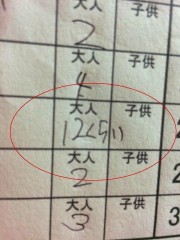 大人 子供
2
大人 子供
4
大人 子供
12くらい
大人 子供
2
2
大人 子供
3
3